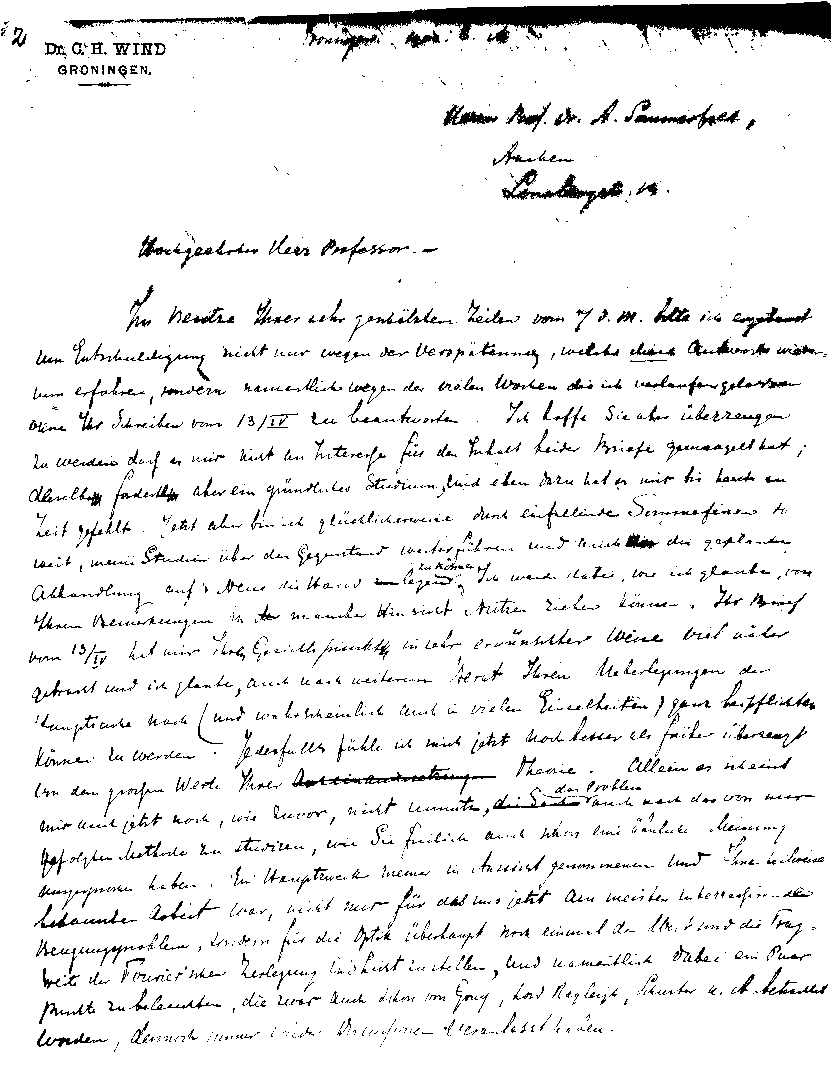 2
Dr. C. H. WIND
GRONINGEN.
Groningen
Herrn Prof. Dr. A. Sommerfeld,
Aachen
Hochgeehrter Herr Professor. —
Im Besitze Ihrer sehr geschätzten Zeilen vom 7 d. M. bitte ich ergebenst
um Entschuldigung nicht nur wegen der Verspätung, welche diese Antwort wieder-
um erfahren, sondern namentlich wegen der vielen Wochen die ich verlaufen gelassen
ohne Ihr Schreiben vom 13/IV zu beantworten. Ich hoffe Sie aber überzeugen
zu werden dass es mir nicht an Interesse für den Inhalt beider Briefe gemangelt hat;
derselbe fordert aber ein gründliches Studium, und eben dazu hat es mir bis heute an
Zeit gefehlt. Jetzt aber bin ich glücklicherweise durch einfallende Sommerferien so
weit, meine Studien über den Gegenstand weiterführen und auch die geplante
Abhandlung auf's Neue die Hand legen zu können. Ich werde dabei, wie ich glaube, von
Ihren Bemerkungen in mancher Hinsicht Nutzen ziehen können. Ihr Brief
vom 13/IV hat mir Ihre Gesichtspunkte in sehr erwünschter Weise viel näher
gebracht und ich glaube, auch nach weiterem Ihren Ueberlegungen der
Hauptsache nach (und wahrscheinlich auch in vielen Einzelheiten) ganz beipflichten
können zu werden. Jedenfalls fühle ich mich jetzt noch besser als früher überzeugt
von dem grossen Werte Ihrer Theorie. Allein es scheint
mir auch jetzt noch, wie zuvor, nicht unnütz, das Problem auch nach der von mir
gefolgten Methode zu studiren, wie Sie freilich auch schon eine ähnliche Meinung
ausgesprochen haben. Ein Hauptzweck meiner in Aussicht genommenen und Ihnen teilweise
bekannten Arbeit war, nicht nur für das uns jetzt am meisten interessirende
Beugungsproblem, sondern für die Optik überhaupt noch einmal den Wert und die Trag-
weite der Fourier'schen Zerlegung ins Licht zu stellen, und namentlich dabei ein Paar
Punkte zu beleuchten, die zwar auch schon von Gouy, Lord Rayleigh, Schuster u. A. betrachtet
worden, dennoch immer wieder veranlasst haben.